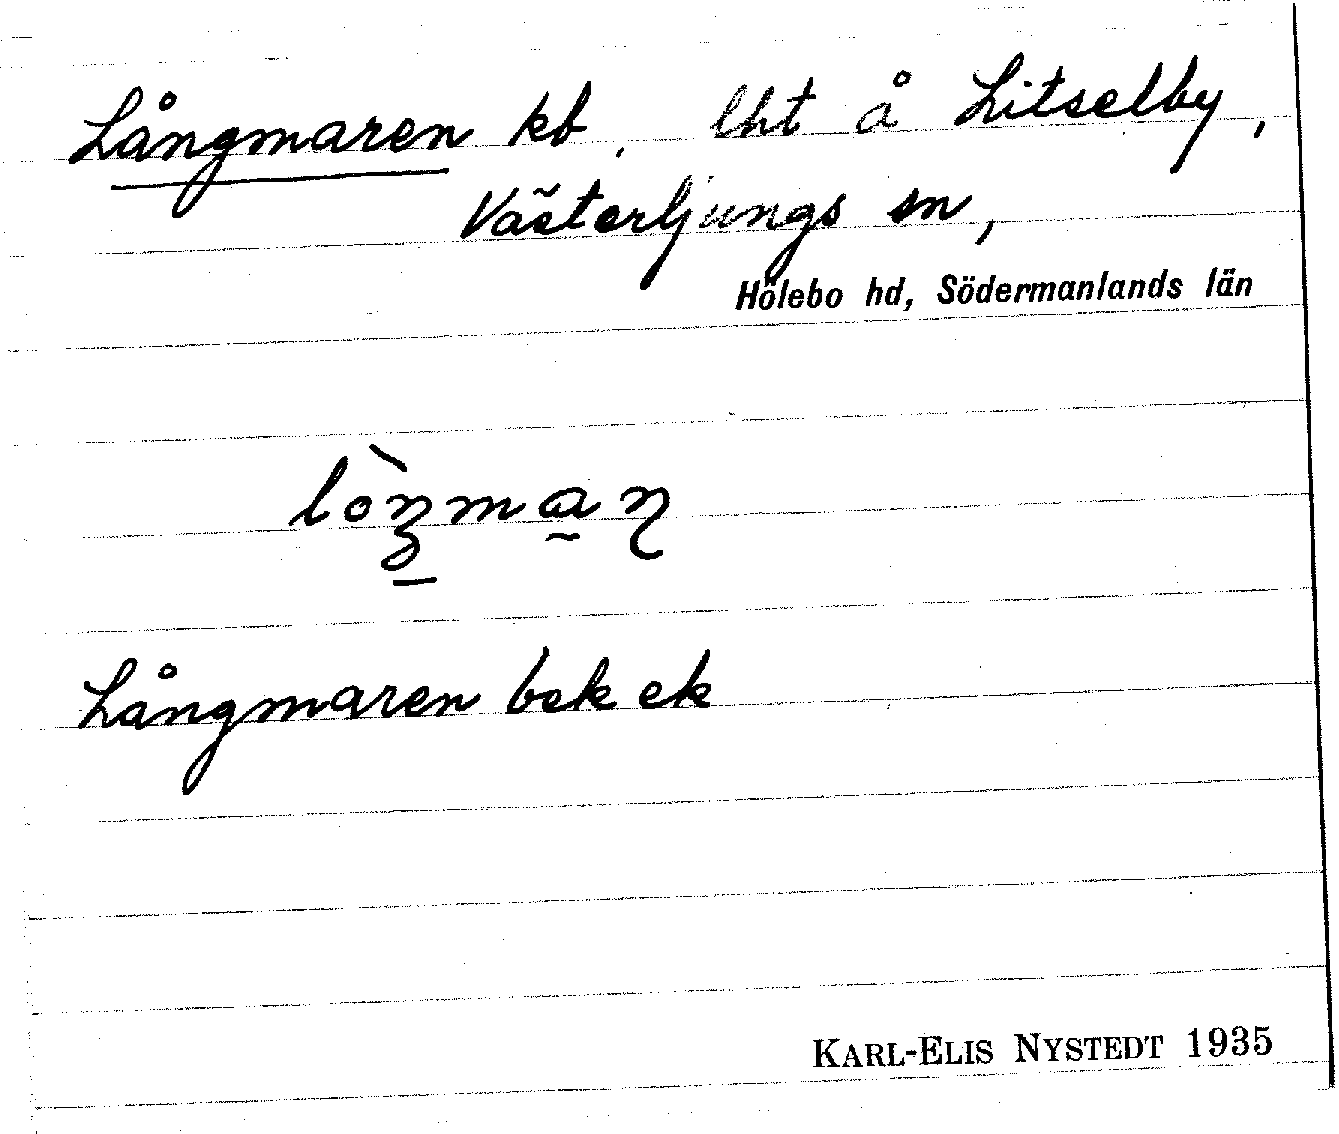 Långmaren kb, lht å Litselby,
Västerljungs sn,
Hölebo hd, Södermanlands län
Långmaren bek ek
KARL-ELIS NYSTEDT 1935